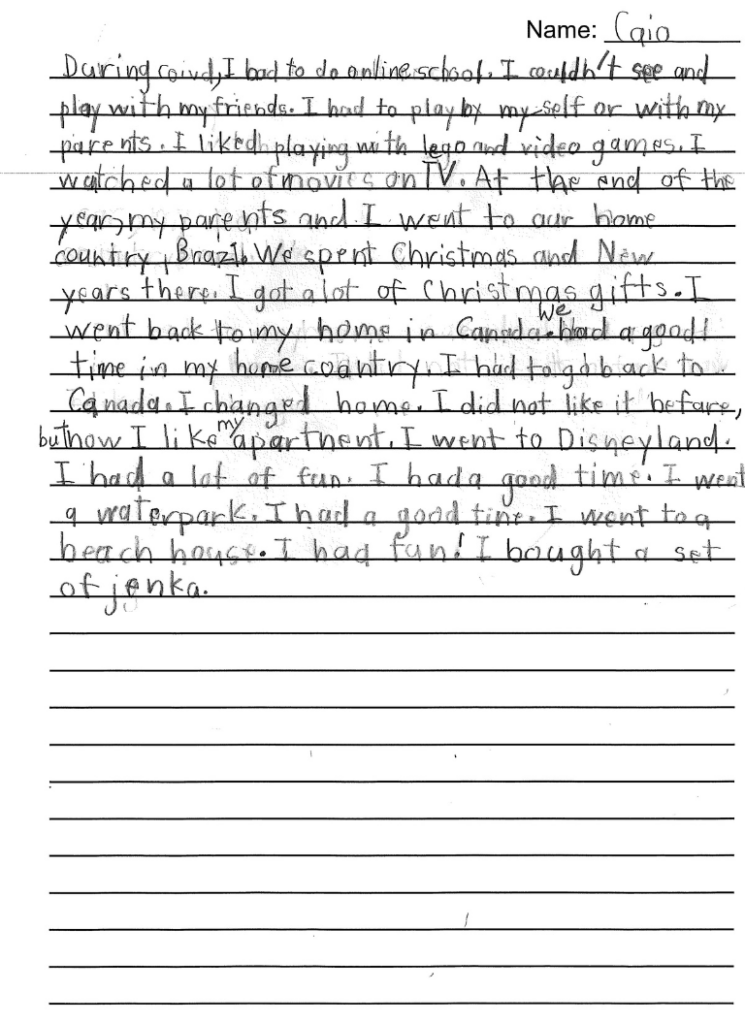 Name: Caio
During coivd, I had to do online school. I couldn't see and
play with my friends. I had to play by my-self or with my
parents. I liked playing with lego and video games. I
watched a lot of movies on TV. At the end of the
year, my parents and I went to our home
country, Brazil. We spent Christmas and New
years there. I got a lot of Christmas gifts. I
went back to my home in Canada. We had a good
time in my home country. I had to go back to
Canada. I changed home. I did not like it before,
but now I like my apartnent. I went to Disneyland.
I had a lot of fun. I had a good time. I went
a waterpark. I had a good tine. I went to a
beach house. I had fun! I bought a set
of jenka.